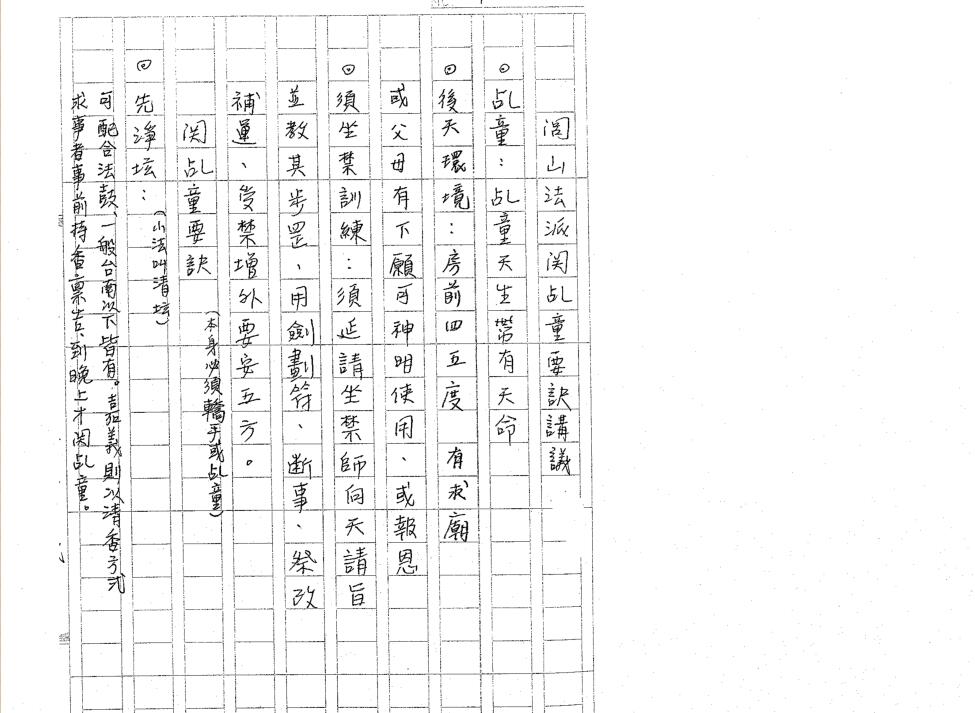 閭山法派関乩童要訣講議
◎乩童：乩童天生帶有天命
◎後天環境：房前四五度　有求廟
或父母有下願可神明使用、或報恩
◎須坐禁訓練：須延請坐禁師向天請旨
並教其步罡、用劍劃符、斷事、祭改
補運、受禁增外要安五方。
関乩童要訣（本身必須轎手或乩童）
◎先淨坛：（小法叫清坛）
可配合法鼓、一般台南以下皆有。嘉義則以清香方式
求事者事前持香稟告、到晚上才関乩童。